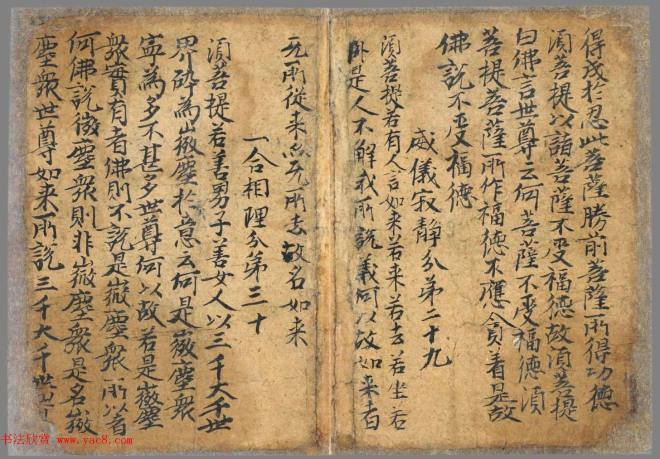 得成於忍此菩薩勝前菩薩所得功德
須菩提以諸菩薩不受福德故須菩提
白佛言世尊云何菩薩不受福德須
菩提菩薩所作福德不應貪著是故
佛說不受福德
威儀寂靜分第二十九
須菩提若有人言如來若來若去若坐若
卧是人不解我所說義何以故如來者
无所從來亦无所去故名如來
一合相理分第三十
須菩提若善男子善女人以三千大千世
界碎為微塵於意云何是微塵衆
寧為多不甚多世尊何以故若是微塵
衆實有者佛則不說是微塵衆所以者
何佛說微塵衆則非微塵衆是名微
塵衆世尊如来所說三千大千世
书法欣赏 www.yac8.com